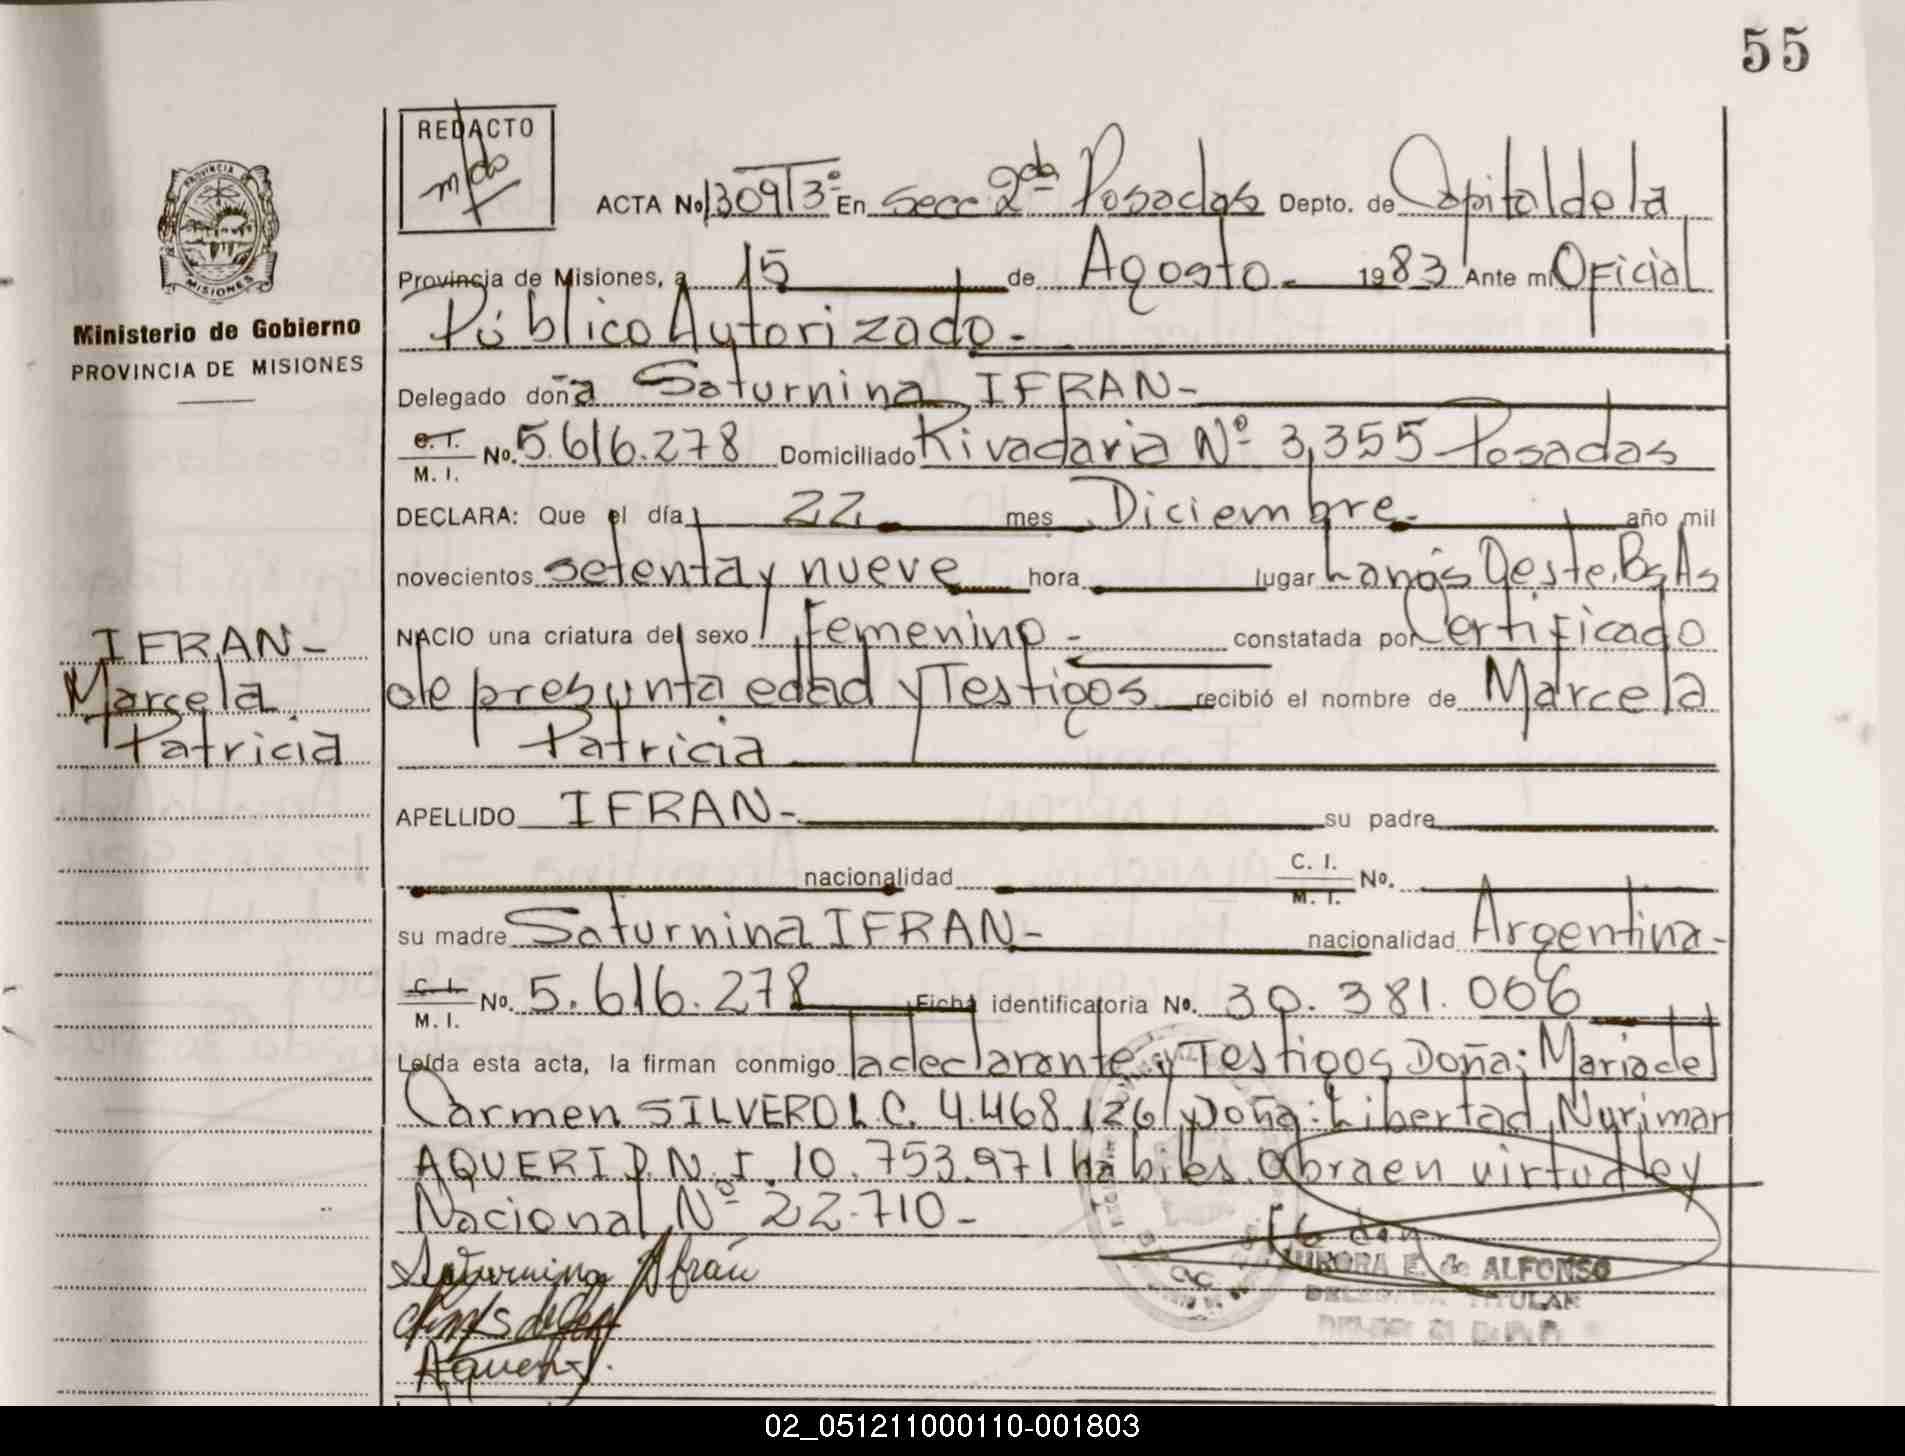 55
REDACTO
PROVINCIA DE
MISIONES
Ministerio de Gobierno
PROVINCIA DE MISIONES
ACTA No 1309T3º En Secc 2da Posadas Depto. de Capital de la
Provincia de Misiones, a 15 de Agosto - 1983 Ante mi Oficial
Público Autorizado -
Delegado doña Saturnina IFRAN-
C. I. M. I. No. 5.616.278 Domiciliado Rivadaria Nº 3,355 Posadas
DECLARA: Que el día 22 mes Diciembre - año mil
novecientos setenta y nueve hora lugar Lanús Oeste, Bs As
NACIO una criatura del sexo Femenino - constatada por Certificado
IFRAN-
Marcela
Patricia
de presunta edad y Testigos recibió el nombre de Marcela
Patricia
APELLIDO IFRAN- su padre
nacionalidad C. I. M. I. No.
su madre Saturnina IFRAN- nacionalidad Argentina-
C. I. M. I. No. 5.616.278 Ficha identificatoria No. 30.381.006
Leída esta acta, la firman conmigo la declarante y Testigos Doña: Maria del
Carmen SILVERO L.C. 4.468.126 y Doña: Libertad Nurimar
AQUERI D.N.I. 10.753.971 habiles. Obra en virtud ley
Nacional Nº 22.710-
Saturnina Ifrán
AURORA E. de ALFONSO
DELEGADA TITULAR
02_051211000110-001803